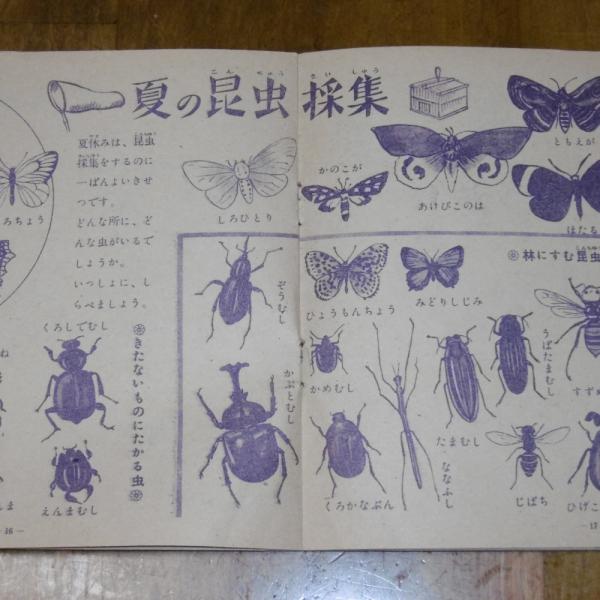 夏の昆虫採集
こん ちゅう さい しゅう
夏休みは、昆虫
採集をするのに
一ばんよいきせ
つです。
どんな所に、ど
んな虫がいるで
しょうか。
いっしょに、し
らべましょう。
ろちょう
しろひとり
かのこが
あけびこのは
ともえが
ほたる
くろしでむし
えんまむし
きたないものにたかる虫
ぞうむし
かぶとむし
林にすむ昆虫
ひょうもんちょう
みどりしじみ
かめむし
くろかなぶん
ななふし
たまむし
うばたまむし
じばち
すずめ
ひげこ
- 16 -